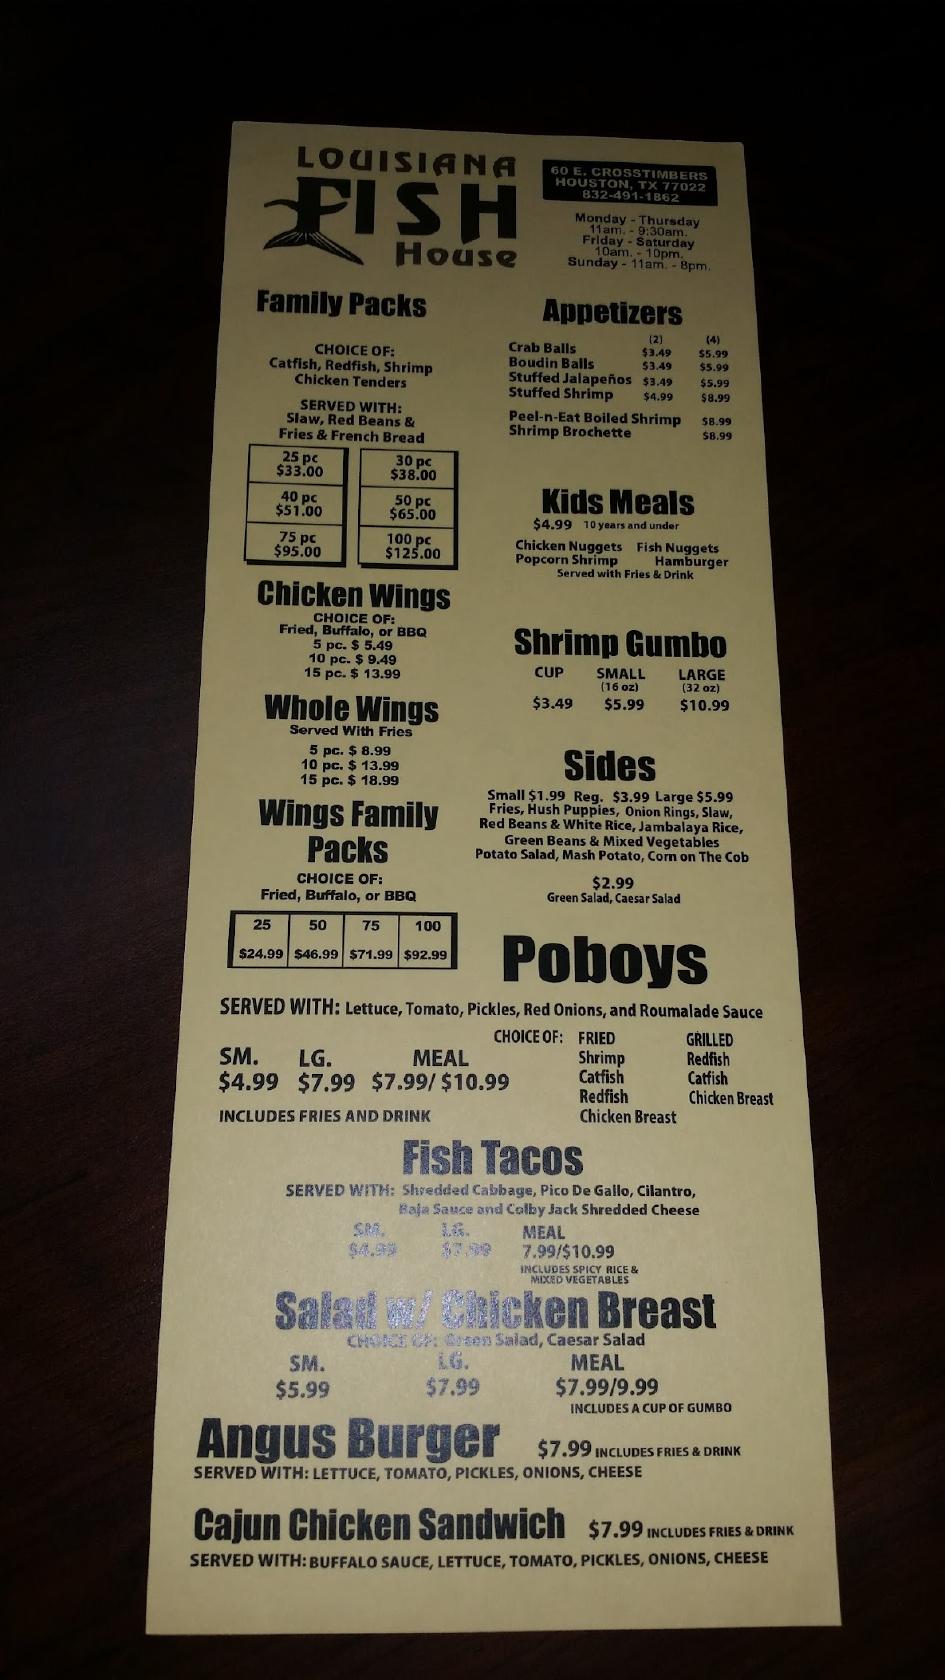 LOUISIANA
FISH
House
60 E. CROSSTIMBERS
HOUSTON, TX 77022
832-491-1862
Monday - Thursday
11am. - 9:30am.
Friday - Saturday
10am. - 10pm.
Sunday - 11am. - 8pm.
Family Packs
CHOICE OF:
Catfish, Redfish, Shrimp
Chicken Tenders
SERVED WITH:
Slaw, Red Beans &
Fries & French Bread
25 pc 30 pc
$33.00 $38.00
40 pc 50 pc
$51.00 $65.00
75 pc 100 pc
$95.00 $125.00
Chicken Wings
CHOICE OF:
Fried, Buffalo, or BBQ
5 pc. $ 5.49
10 pc. $ 9.49
15 pc. $ 13.99
Whole Wings
Served With Fries
5 pc. $ 8.99
10 pc. $ 13.99
15 pc. $ 18.99
Wings Family
Packs
CHOICE OF:
Fried, Buffalo, or BBQ
25 50 75 100
$24.99 $46.99 $71.99 $92.99
Appetizers
(2) (4)
Crab Balls $3.49 $5.99
Boudin Balls $3.49 $5.99
Stuffed Jalapeños $3.49 $5.99
Stuffed Shrimp $4.99 $8.99
Peel-n-Eat Boiled Shrimp $8.99
Shrimp Brochette $8.99
Kids Meals
$4.99 10 years and under
Chicken Nuggets Fish Nuggets
Popcorn Shrimp Hamburger
Served with Fries & Drink
Shrimp Gumbo
CUP SMALL LARGE
(16 oz) (32 oz)
$3.49 $5.99 $10.99
Sides
Small $1.99 Reg. $3.99 Large $5.99
Fries, Hush Puppies, Onion Rings, Slaw,
Red Beans & White Rice, Jambalaya Rice,
Green Beans & Mixed Vegetables
Potato Salad, Mash Potato, Corn on The Cob
$2.99
Green Salad, Caesar Salad
Poboys
SERVED WITH: Lettuce, Tomato, Pickles, Red Onions, and Roumalade Sauce
SM. LG. MEAL
$4.99 $7.99 $7.99/ $10.99
INCLUDES FRIES AND DRINK
CHOICE OF: FRIED GRILLED
Shrimp Redfish
Catfish Catfish
Redfish Chicken Breast
Chicken Breast
Fish Tacos
SERVED WITH: Shredded Cabbage, Pico De Gallo, Cilantro,
Baja Sauce and Colby Jack Shredded Cheese
SM. LG. MEAL
$4.99 $7.99 7.99/$10.99
INCLUDES SPICY RICE &
MIXED VEGETABLES
Salad w/ Chicken Breast
CHOICE OF: Green Salad, Caesar Salad
SM. LG. MEAL
$5.99 $7.99 $7.99/9.99
INCLUDES A CUP OF GUMBO
Angus Burger $7.99 INCLUDES FRIES & DRINK
SERVED WITH: LETTUCE, TOMATO, PICKLES, ONIONS, CHEESE
Cajun Chicken Sandwich $7.99 INCLUDES FRIES & DRINK
SERVED WITH: BUFFALO SAUCE, LETTUCE, TOMATO, PICKLES, ONIONS, CHEESE